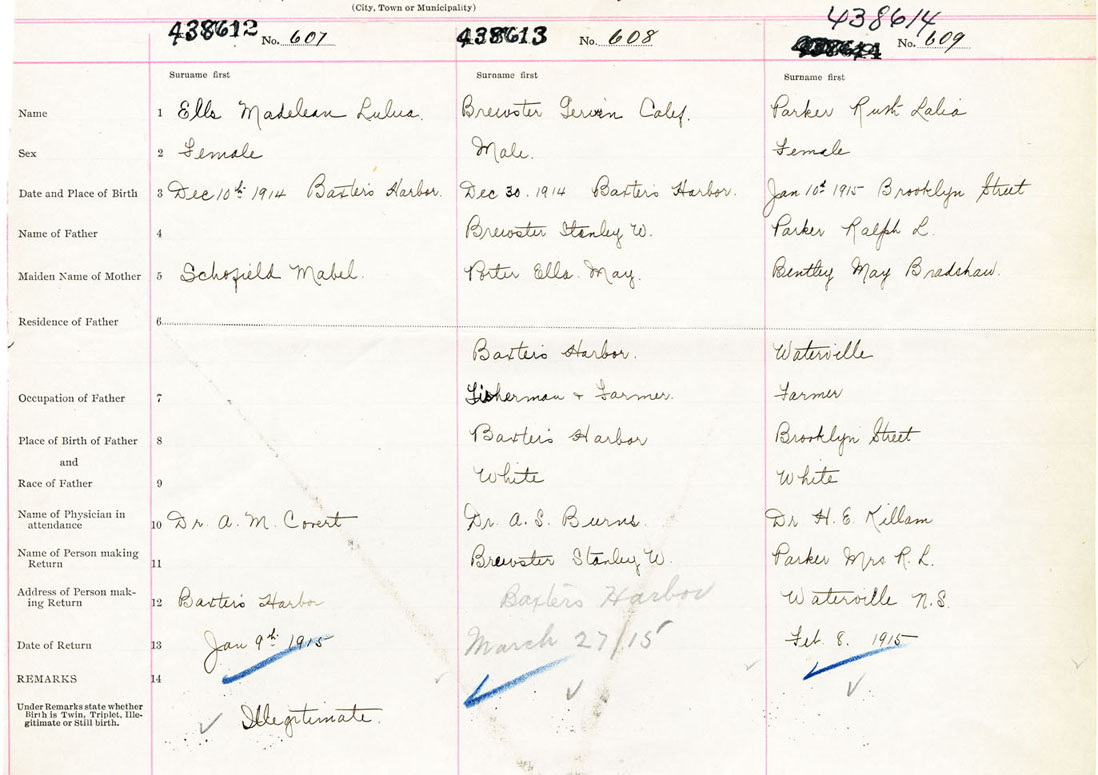 (City, Town or Municipality)
438612 No. 607 438613 No. 608 438614 No. 609
Surname first Surname first Surname first
Name 1 Ells Madelean Lulua. Brewster Gervin Calef. Parker Ruth Lalia
Sex 2 Female Male. Female
Date and Place of Birth 3 Dec 10th 1914 Baxters Harbor. Dec 30. 1914 Baxters Harbor. Jan 10th 1915 Brooklyn Street
Name of Father 4 Brewster Stanley W. Parker Ralph L.
Maiden Name of Mother 5 Schofield Mabel. Porter Ella May. Bentley May Bradshaw.
Residence of Father 6
Baxters Harbor. Waterville
Occupation of Father 7 Fisherman + Farmer. Farmer
Place of Birth of Father 8 Baxters Harbor Brooklyn Street
and
Race of Father 9 White White
Name of Physician in
attendance 10 Dr. A. M. Covert Dr. A. S. Burns. Dr H. E. Killam
Name of Person making
Return 11 Brewster Stanley W. Parker Mrs R. L.
Address of Person mak-
ing Return 12 Baxters Harbor Baxters Harbor Waterville N.S.
Date of Return 13 Jan 9th 1915 March 27/15 Feb. 8. 1915
REMARKS 14
Under Remarks state whether
Birth is Twin, Triplet, Ille-
gitimate or Still birth. Illegitimate.